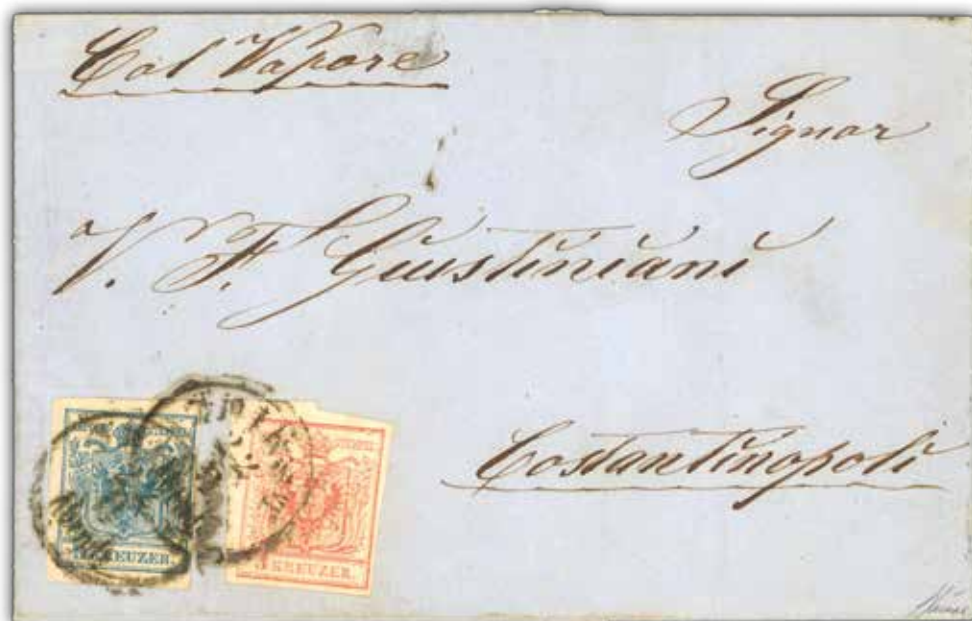 Col Vapore
Signor
V. F. Giustiniani
Costantinopoli
KREUZER.
3 KREUZER.